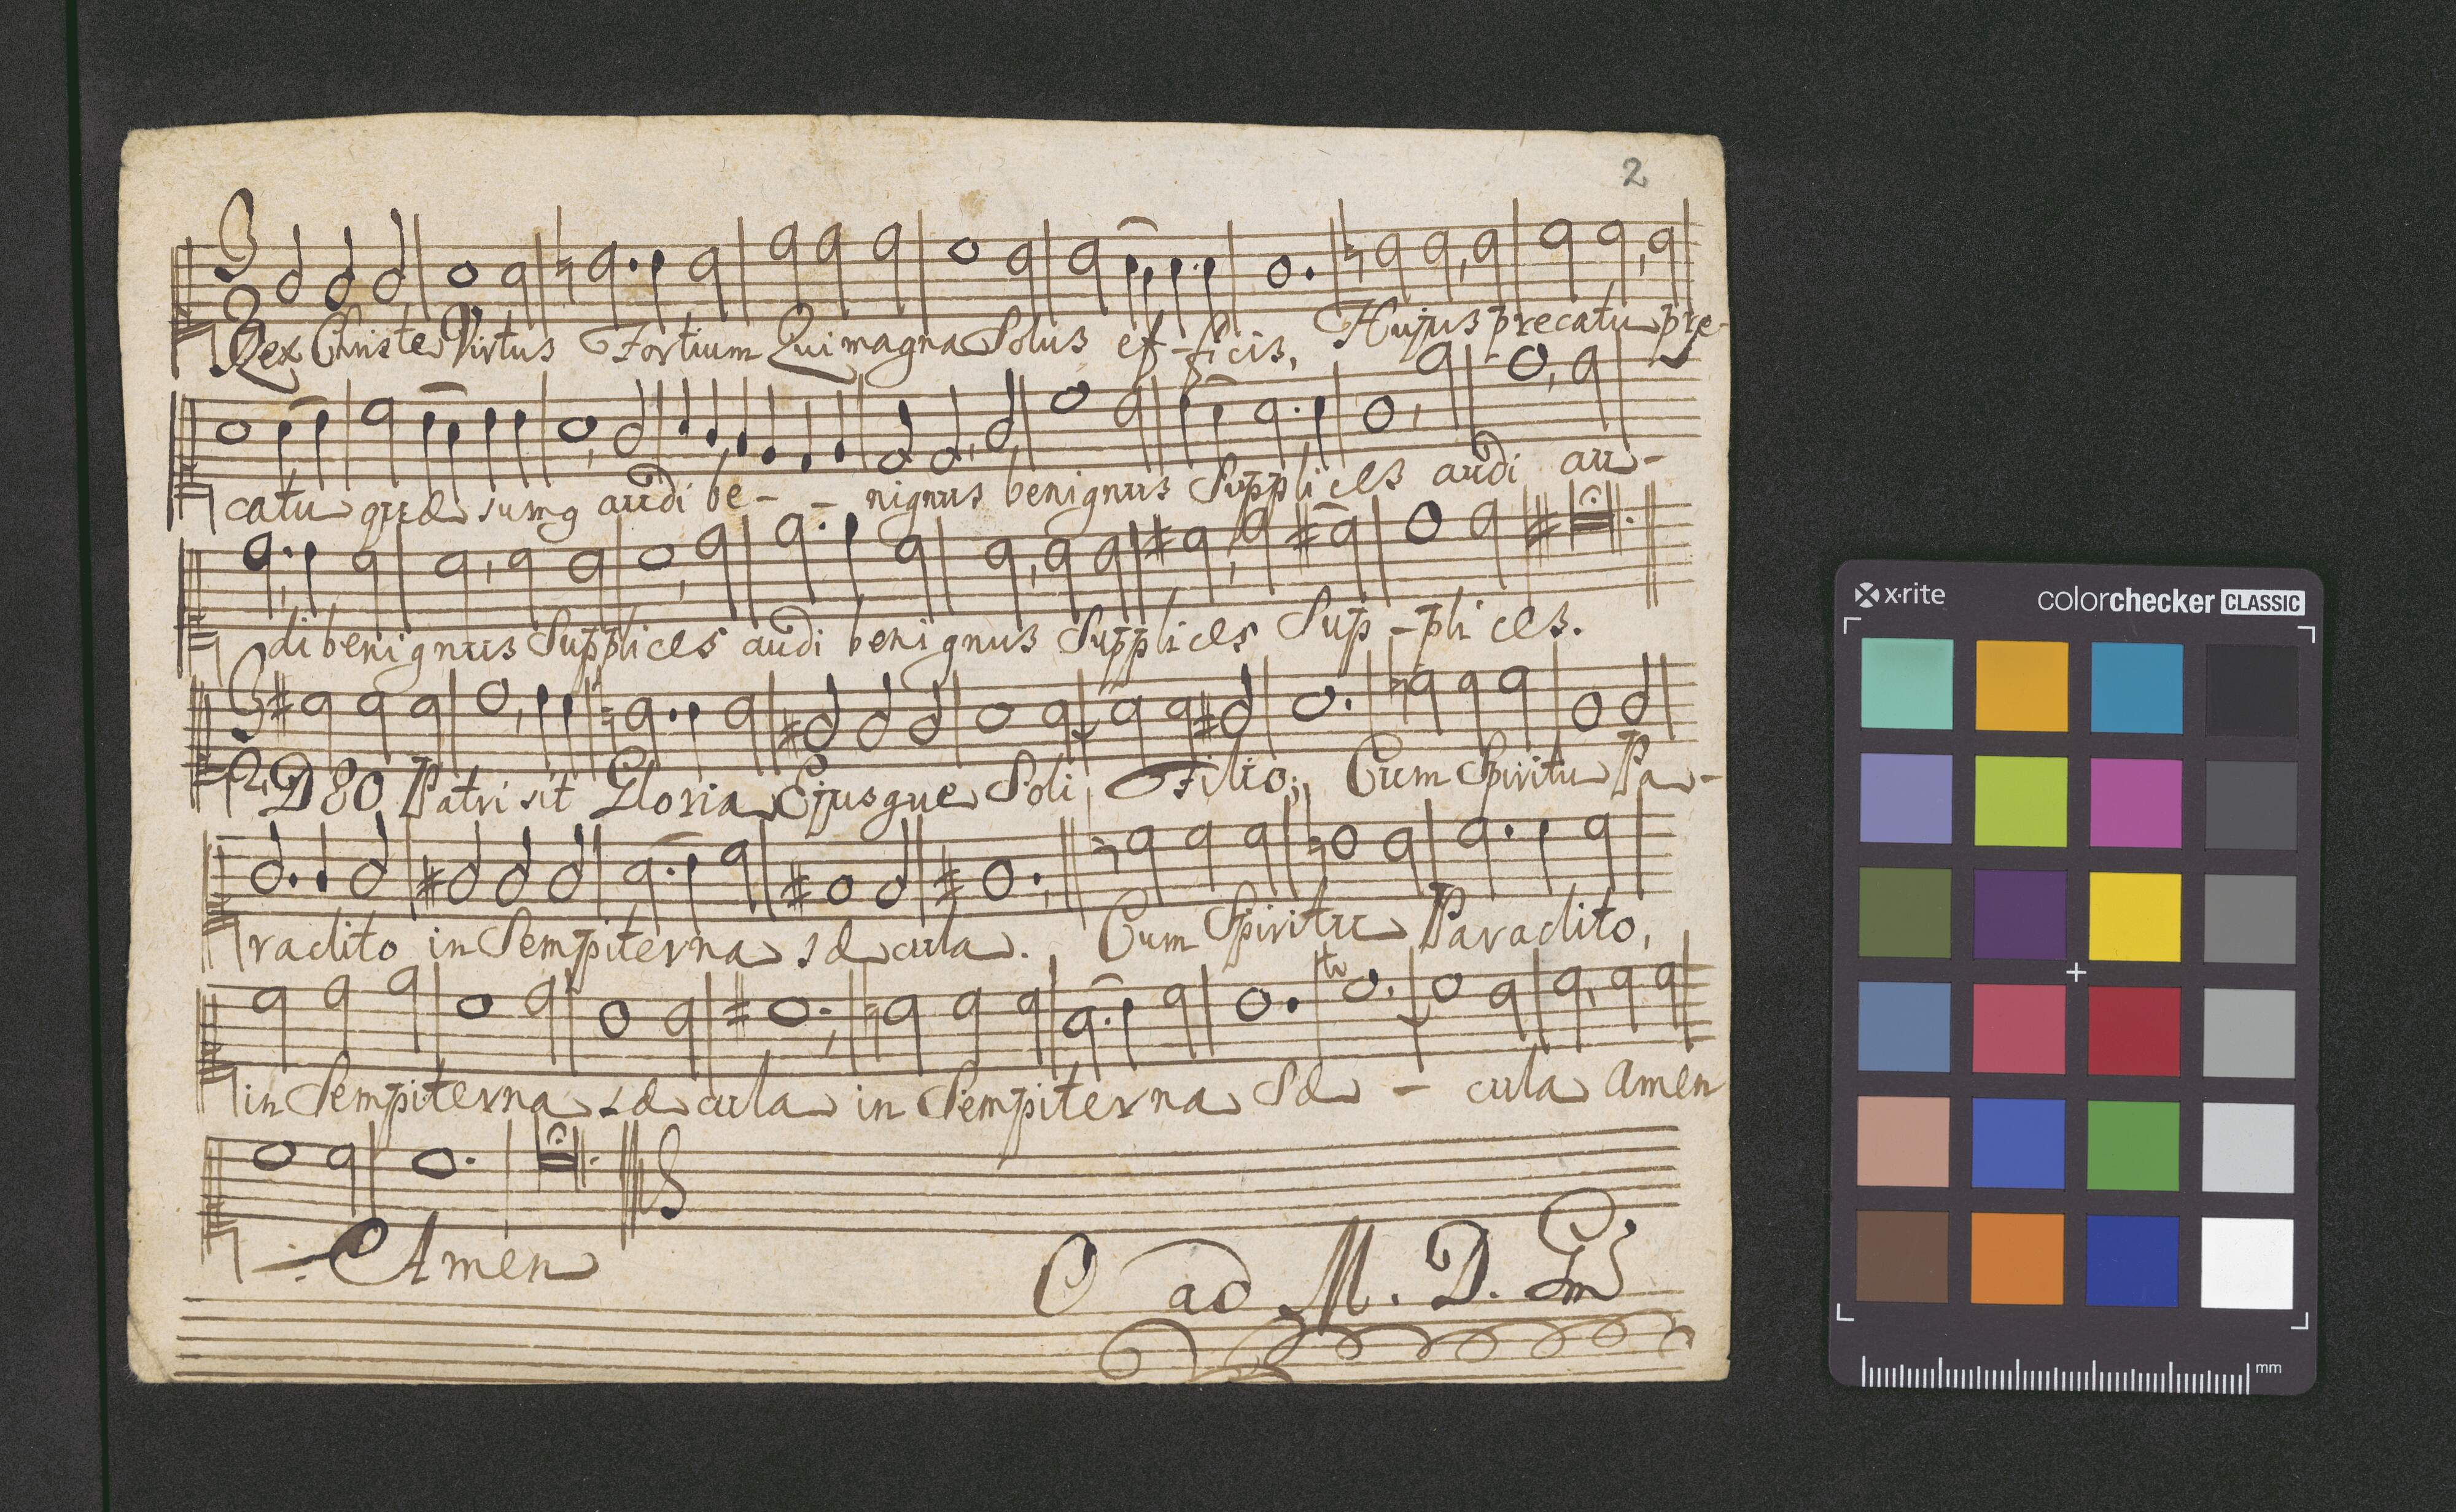 2
Rex Christe Virtus Fortium Qui magna Solus ef-ficis, Hujus precatu pre-
catu quæ sumq audi be- - nignus benignus Supplices audi au-
di benignus Supplices audi benignus Supplices Sup-plices.
DEO Patri sit Gloria Ejusque Soli Filio; Cum Spiritu Pa-
raclito in Sempiterna sæcula. Cum Spiritu Paraclito,
in Sempiterna sæcula in Sempiterna Sæ - cula Amen
tr
- Amen
O ad M. D. Gm
x·rite
colorchecker CLASSIC
mm